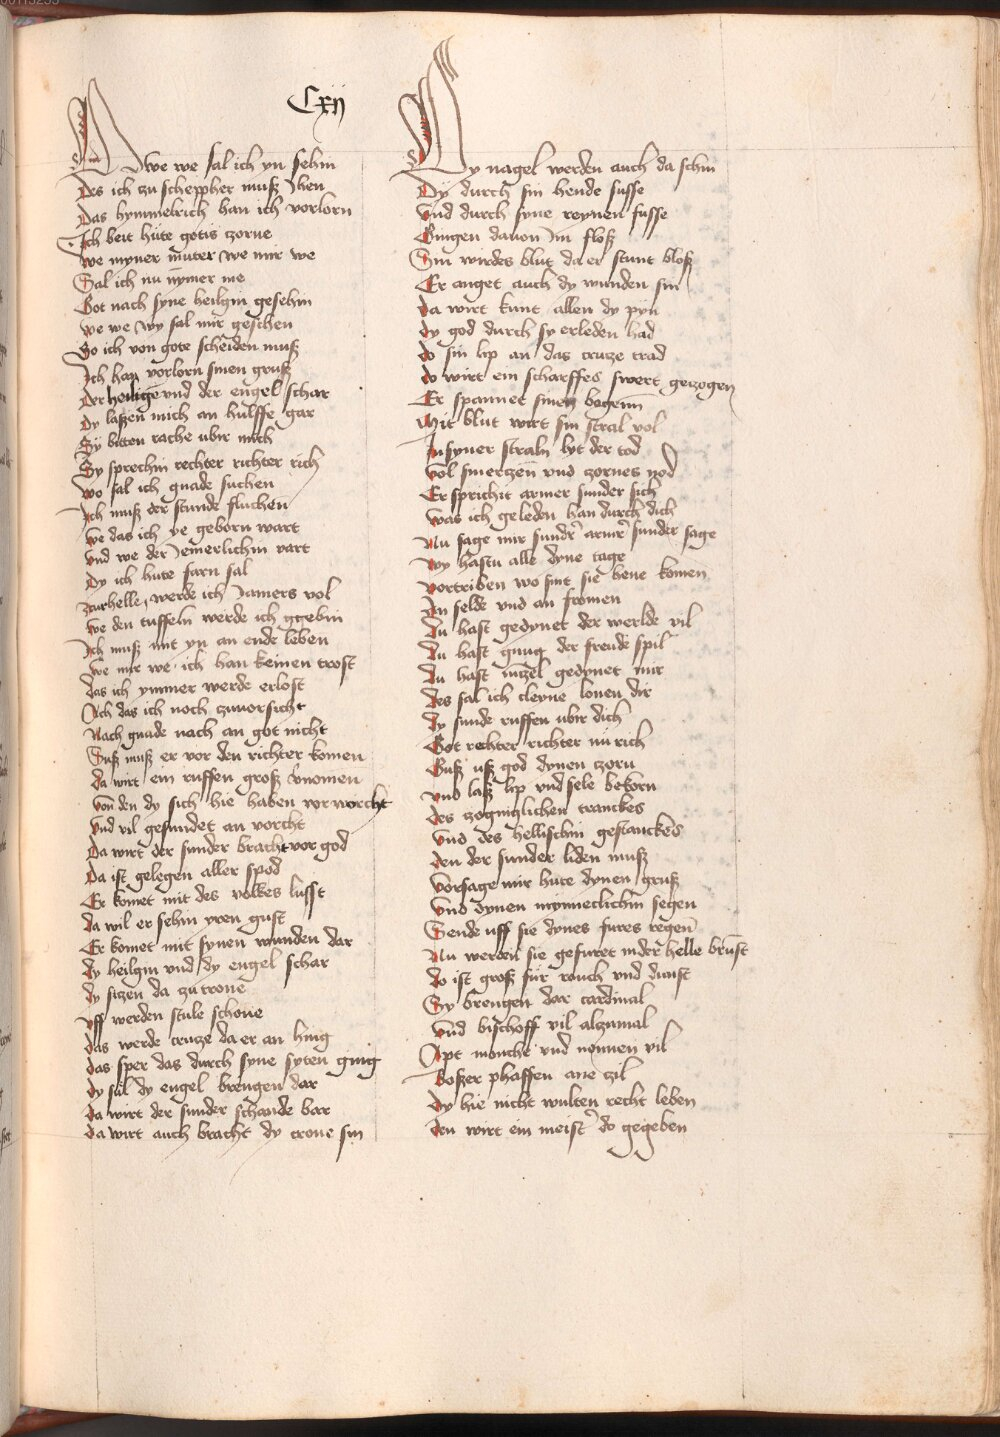 Cxij
Owe we sal ich yn sehin
Des ich zu schephher muß Jhen
Das hymmelrich han ich vorlorn
Ich beit hute gotis zorne
We myner muter we mir we
Sal ich nu nymer me
Got nach syne heilgin gesehin
We we wy sal mir geschen
So ich von gote scheiden muß
Ich han vorlorn sinen gruß
Der heilige vnd der engel schar
Dy laßen mich an hulffe gar
Sy bitten rache ubir mich
Sy sprechin rechter richter rich
Wo sal ich gnade suchen
Ich muß der stunde fluchen
We das ich ye geborn wart
Vnd we der Jemerlichin vart
Dy ich hute farn sal
Zcur helle, werde ich Jamers vol
We den tuffeln werde ich gegebin
Ich muß mit yn an ende leben
We mir we ich han keinen trost
das ich ymmer werde erlost
Ach das ich noch zuuorsicht
Nach gnade nach an got nicht
Suß muß er vor den richter komen
da wirt ein ruffen groß vnomen
Von den dy sich hie haben vorworcht
Vnd vil gesundet an vorcht
Da wirt der sunder bracht vor god
Da ist gelegen aller spod
Er komet mit des volkes lusst
da wil er sehin yren gust
Er komet mit synen wunden dar
dy heilgin vnd dy engel schar
dy sizen da zu trone
Uff werden stule schone
das werde cruze da er an hing
das sper das durch syne syten ging
dy sal dy engel brengen dar
da wirt der sunder schande bar
da wirt auch bracht dy crone sin
Dy nagel werden auch da schin
Dy durch sin hende susse
Vnd durch syne reynen fusse
Gingen dauon Im floß
Sin wirdes blut da er stunt bloß
Er anget auch dy wunden sin
da wirt kunt allen dy pyn
dy god durch sy erleden had
do sin lip an das cruze trad
do wirt ein scharffes swert gezogen
Er spannet sinen bogenn
Mit blut wirt sin stral vol
In syner straln lyt der tod
Vol smerzen vnd zornes nod
Er sprichit armer sunder sich
Was ich geleden han durch dich
Nu sage mir sunder armer sunder sage
Wy hastu alle dyne tage
vortriben wo sint sie hene komen
An selde vnd an fromen
Du hast gedynet der werlde vil
Du hast gnug der freude spil
Du hast mizel gedynet mir
des sal ich cleyne lonen dir
dy sunde ruffen ubir dich
Got rechter richter nu rich
Guß uß god dynen zorn
vnd laß lip vnd sele bekorn
des zognizlichen tranckes
Vnd des hellischin gestanckes
den der sunder liden muß
Vorsage mir hute dynen gruß
Vnd dynen mynneclichin segen
Sende uff sie dynes fures regen
Nu werden sie gefuret in der helle brunst
do ist groß fur rouch vnd dunst
Sy brengen dar cardinal
Vnd bischoff vil alzumal
Apt monche vnd nonnen vil
Boßer phaffen ane zil
dy hie nicht wulten recht leben
den wirt ein meister do gegeben